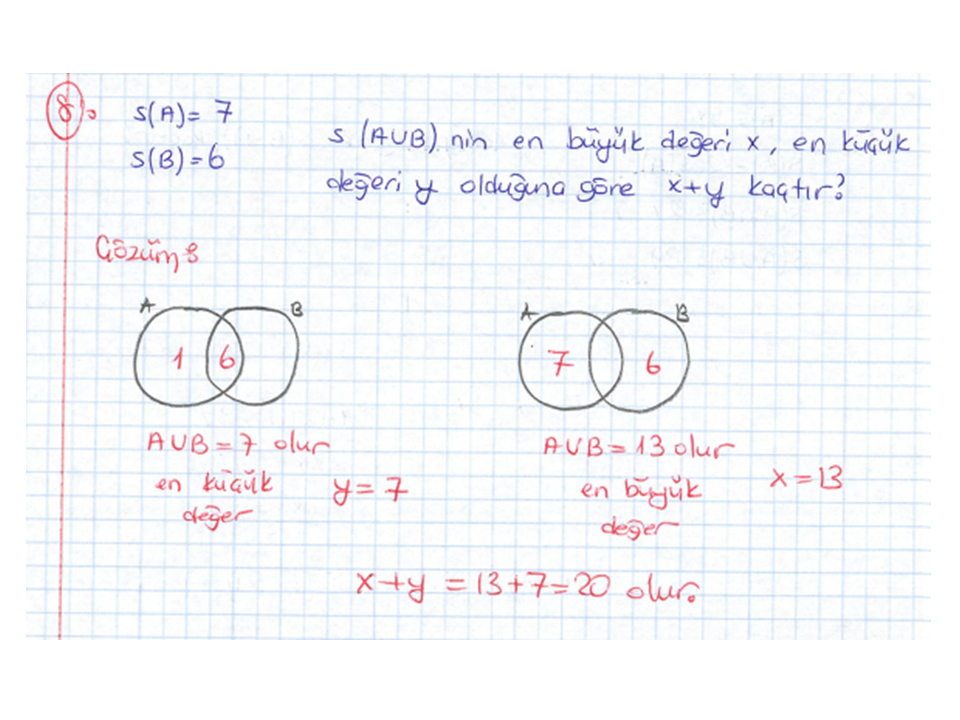 8.
s(A)= 7
s(B)=6
s (AUB) nin en büyük değeri x, en küçük
değeri y olduğuna göre x+y kaçtır?
Çözüm:
A B
1 6
A B
7 6
AUB=7 olur
en küçük
değer
y=7
AUB=13 olur
en büyük
değer
x=13
x+y =13+7=20 olur.